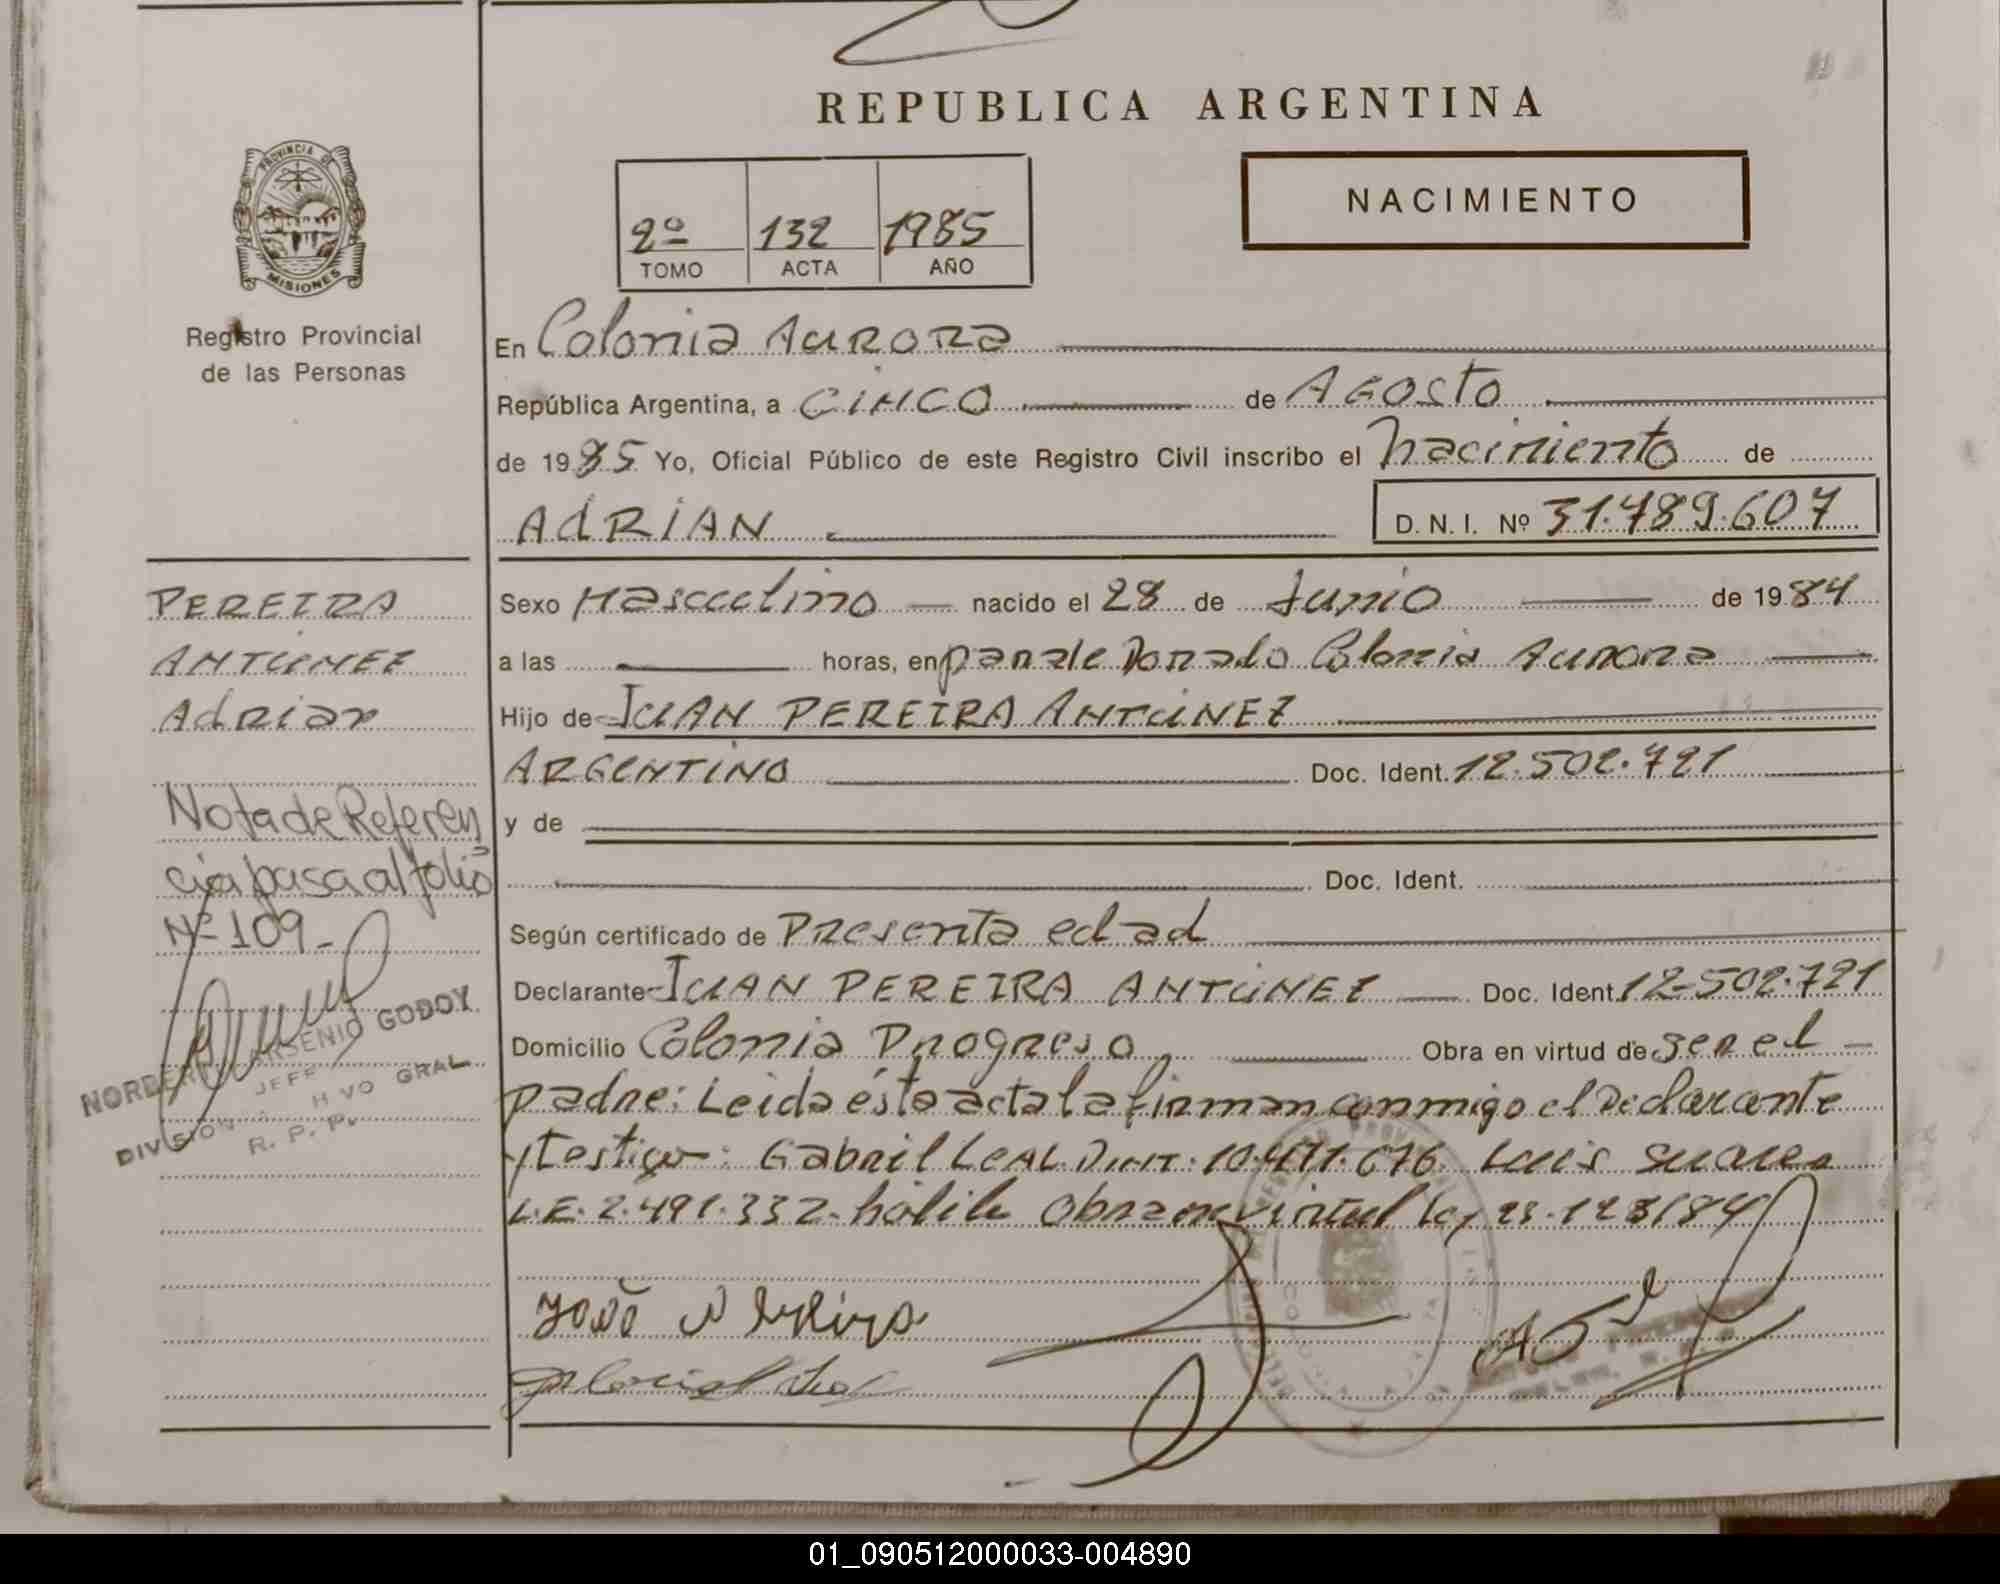 REPUBLICA ARGENTINA
NACIMIENTO
2º 132 1985
TOMO ACTA AÑO
PROVINCIA DE
MISIONES
Registro Provincial
de las Personas
En Colonia AURORA
República Argentina, a CINCO de AGOSTO
de 1985 Yo, Oficial Público de este Registro Civil inscribo el Nacimiento de
AdRIAN D.N.I. Nº 31.789.607
PEREIRA
ANTUNEZ
Adrian
Nota de Referen
cia pasa al folio
Nº 109_
ARSENIO GODOY
JEFE
DIVISION GRAL
R. P. P.
Sexo Masculino nacido el 28 de Junio de 1984
a las horas, en paraje Dorado Colonia Aurora
Hijo de JUAN PEREIRA ANTUNEZ
ARGENTINO Doc. Ident. 12.502.721
y de
Doc. Ident.
Según certificado de Presenta edad
Declarante JUAN PEREIRA ANTUNEZ Doc. Ident. 12.502.721
Domicilio Colonia Progreso Obra en virtud de ser el
padre: Leida ésta acta la firman conmigo el Declarante
y testigos: Gabriel LEAL D.N.I. 10.471.676 Luis Suarez
L.E. 2.491.332- hábile Obra en virtud ley 23.123/84
01_090512000033-004890